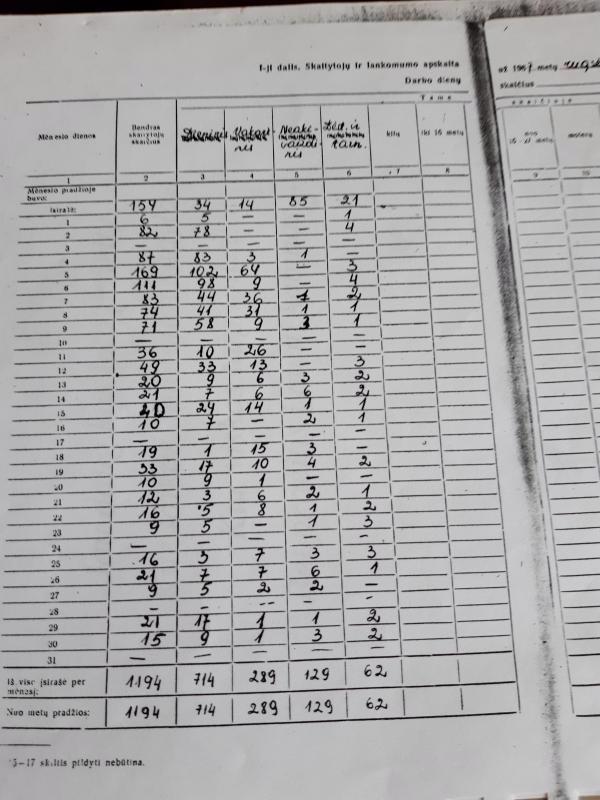 I-ji dalis. Skaitytojų ir lankomumo apskaita
už 1967 metų rugs
Darbo dienų
skaičius
Tame
Mėnesio dienos Bendras skaitytojų skaičius Neaki-vaizdi-nis Ded. ir tarn. kitų iki 16 metų
1 2 3 4 5 6 7 8 9 10
Mėnesio pradžioje buvo: 154 34 14 85 21
Įsirašė:
1 6 5 — — 1
2 82 78 — — 4
3 — — — — —
4 87 83 3 1 —
5 169 102 64 — 3
6 111 98 9 — 4
7 83 44 36 1 2
8 74 41 31 1 1
9 71 58 9 3 1
10 — — — — —
11 36 10 26 — —
12 49 33 13 — 3
13 20 9 6 3 2
14 21 7 6 6 2
15 40 24 14 1 1
16 10 7 — 2 1
17 — — — — —
18 19 1 15 3 —
19 33 17 10 4 2
20 10 9 1 — —
21 12 3 6 2 1
22 16 5 8 1 2
23 9 5 — 1 3
24 — — — — —
25 16 3 7 3 3
26 21 7 7 6 1
27 9 5 2 2 —
28 — — — — —
29 21 17 1 1 2
30 15 9 1 3 2
31 — — — — —
Iš viso įsirašė per mėnesį: 1194 714 289 129 62
Nuo metų pradžios: 1194 714 289 129 62
5—17 skiltis pildyti nebūtina.